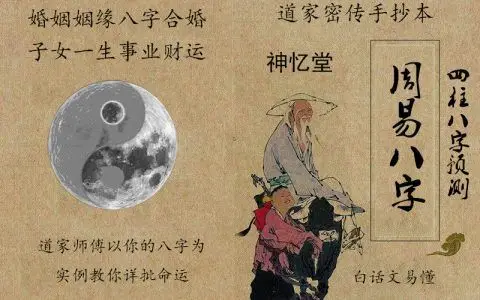 婚姻姻缘八字合婚
子女一生事业财运
道家师傅以你的八字为
实例教你详批命运
道家密传手抄本
神忆堂
周易八字
四柱八字预测
白话文易懂